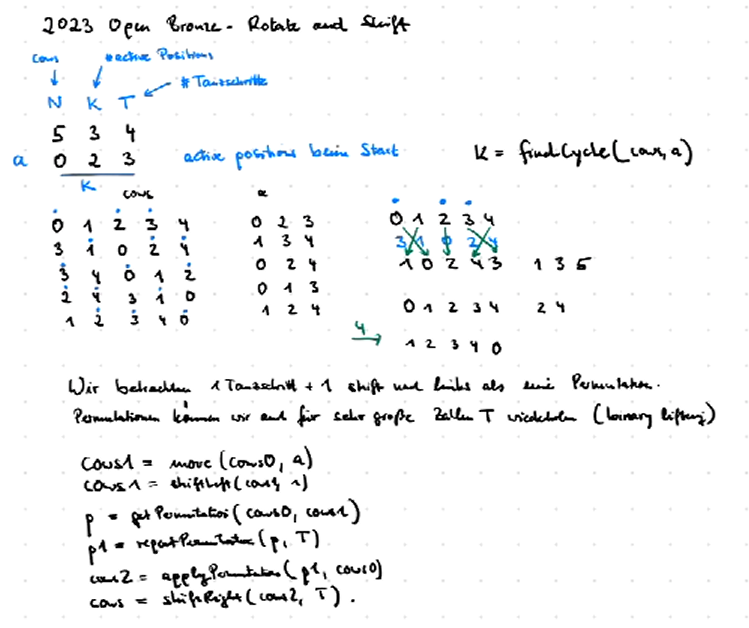 2023 Open Bronze - Rotate and Shift
cows #active Positions
#Tanzschritte
N K T
5 3 4
a 0 2 3 active positions beim Start K = findCycle(cows, a)
K
cows a
0 1 2 3 4 0 2 3 0 1 2 3 4
3 1 0 2 4 1 3 4 3 1 0 2 4
3 4 0 1 2 0 2 4 1 0 2 4 3 1 3 5
2 4 3 1 0 0 1 3 0 1 2 3 4 2 4
1 2 3 4 0 1 2 4
4 1 2 3 4 0
Wir betrachten 1 Tanzschritt + 1 shift nach links als eine Permutation.
Permutationen können wir auch für sehr große Zahlen T wiederholen (binary lifting)
cows1 = move(cows0, a)
cows1 = shiftLeft(cows1, 1)
p = getPermutation(cows0, cows1)
p1 = repeatPermutation(p, T)
cows2 = applyPermutation(p1, cows0)
cows = shiftRight(cows2, T).